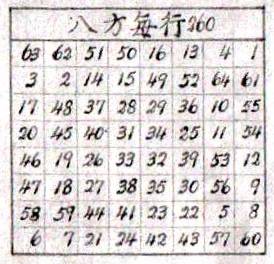 八方每行260
63 62 51 50 16 13 4 1
3 2 14 15 49 52 64 61
17 48 37 28 29 36 10 55
20 45 40 31 34 25 11 54
46 19 26 33 32 39 53 12
47 18 27 38 35 30 56 9
58 59 44 41 23 22 5 8
6 7 21 24 42 43 57 60